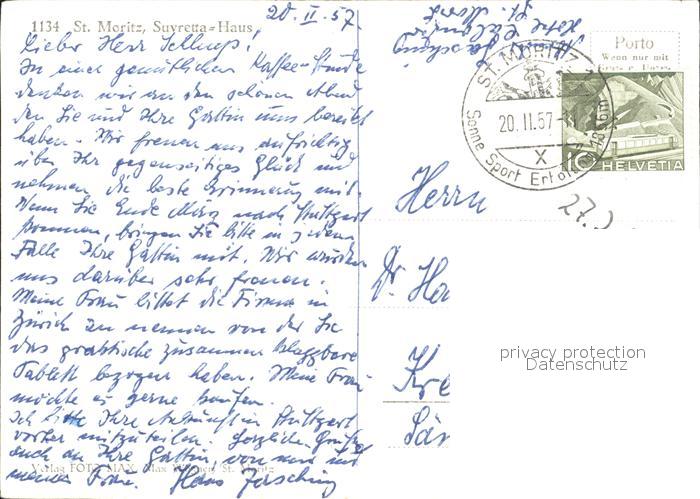 20. II. 57.
1134 St. Moritz, Suvretta-Haus
Lieber Herr
In einer gemütlichen Kaffee-Stunde
denken wir an den schönen Abend
den Sie und Ihre Gattin uns bereitet
haben. Wir freuen uns aufrichtig
über Ihr gegenseitiges Glück und
nehmen die beste Erinnerung mit.
Wenn Sie Ende März nach Stuttgart
kommen, bringen Sie bitte in jedem
Falle Ihre Gattin mit. Wir würden
uns darüber sehr freuen.
Meine Frau bittet die Firma in
Zürich zu nennen von der Sie
das praktische zusammenklappbare
Tablett bezogen haben. Meine Frau
möchte es gerne kaufen.
Ich bitte Ihre Ankunft in Stuttgart
vorher mitzuteilen. Herzliche Grüße
auch an Ihre Gattin, von mir und
meiner Frau. Hans
Verlag FOTO MAX, Max St. Moritz
St. Moritz
Porto
Wenn nur mit
ST. MORITZ
20. II. 57
X
Sonne Sport Erholung
10
HELVETIA
27.
Herrn
Dr. Ha
Kre
privacy protection
Datenschutz